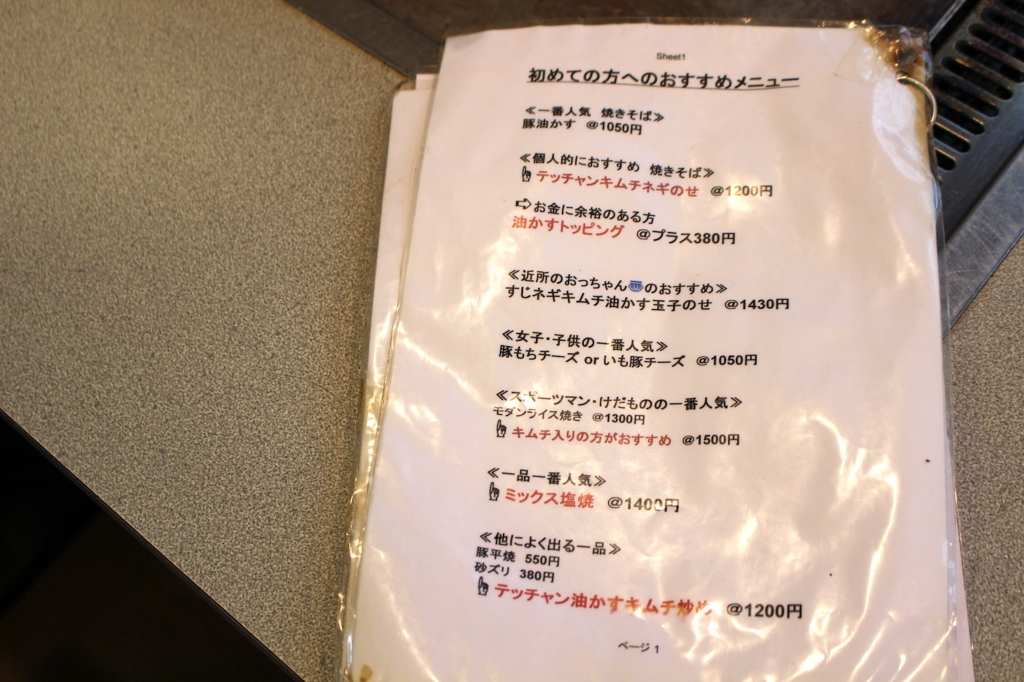 Sheet1
初めての方へのおすすめメニュー
≪一番人気 焼きそば≫
豚油かす @1050円
≪個人的におすすめ 焼きそば≫
テッチャンキムチネギのせ @1200円
⇨お金に余裕のある方
油かすトッピング @プラス380円
≪近所のおっちゃんのおすすめ≫
すじネギキムチ油かす玉子のせ @1430円
≪女子・子供の一番人気≫
豚もちチーズ or いも豚チーズ @1050円
≪スポーツマン・けだものの一番人気≫
モダンライス焼き @1300円
キムチ入りの方がおすすめ @1500円
≪一品一番人気≫
ミックス塩焼 @1400円
≪他によく出る一品≫
豚平焼 550円
砂ズリ 380円
テッチャン油かすキムチ炒め @1200円
ページ 1